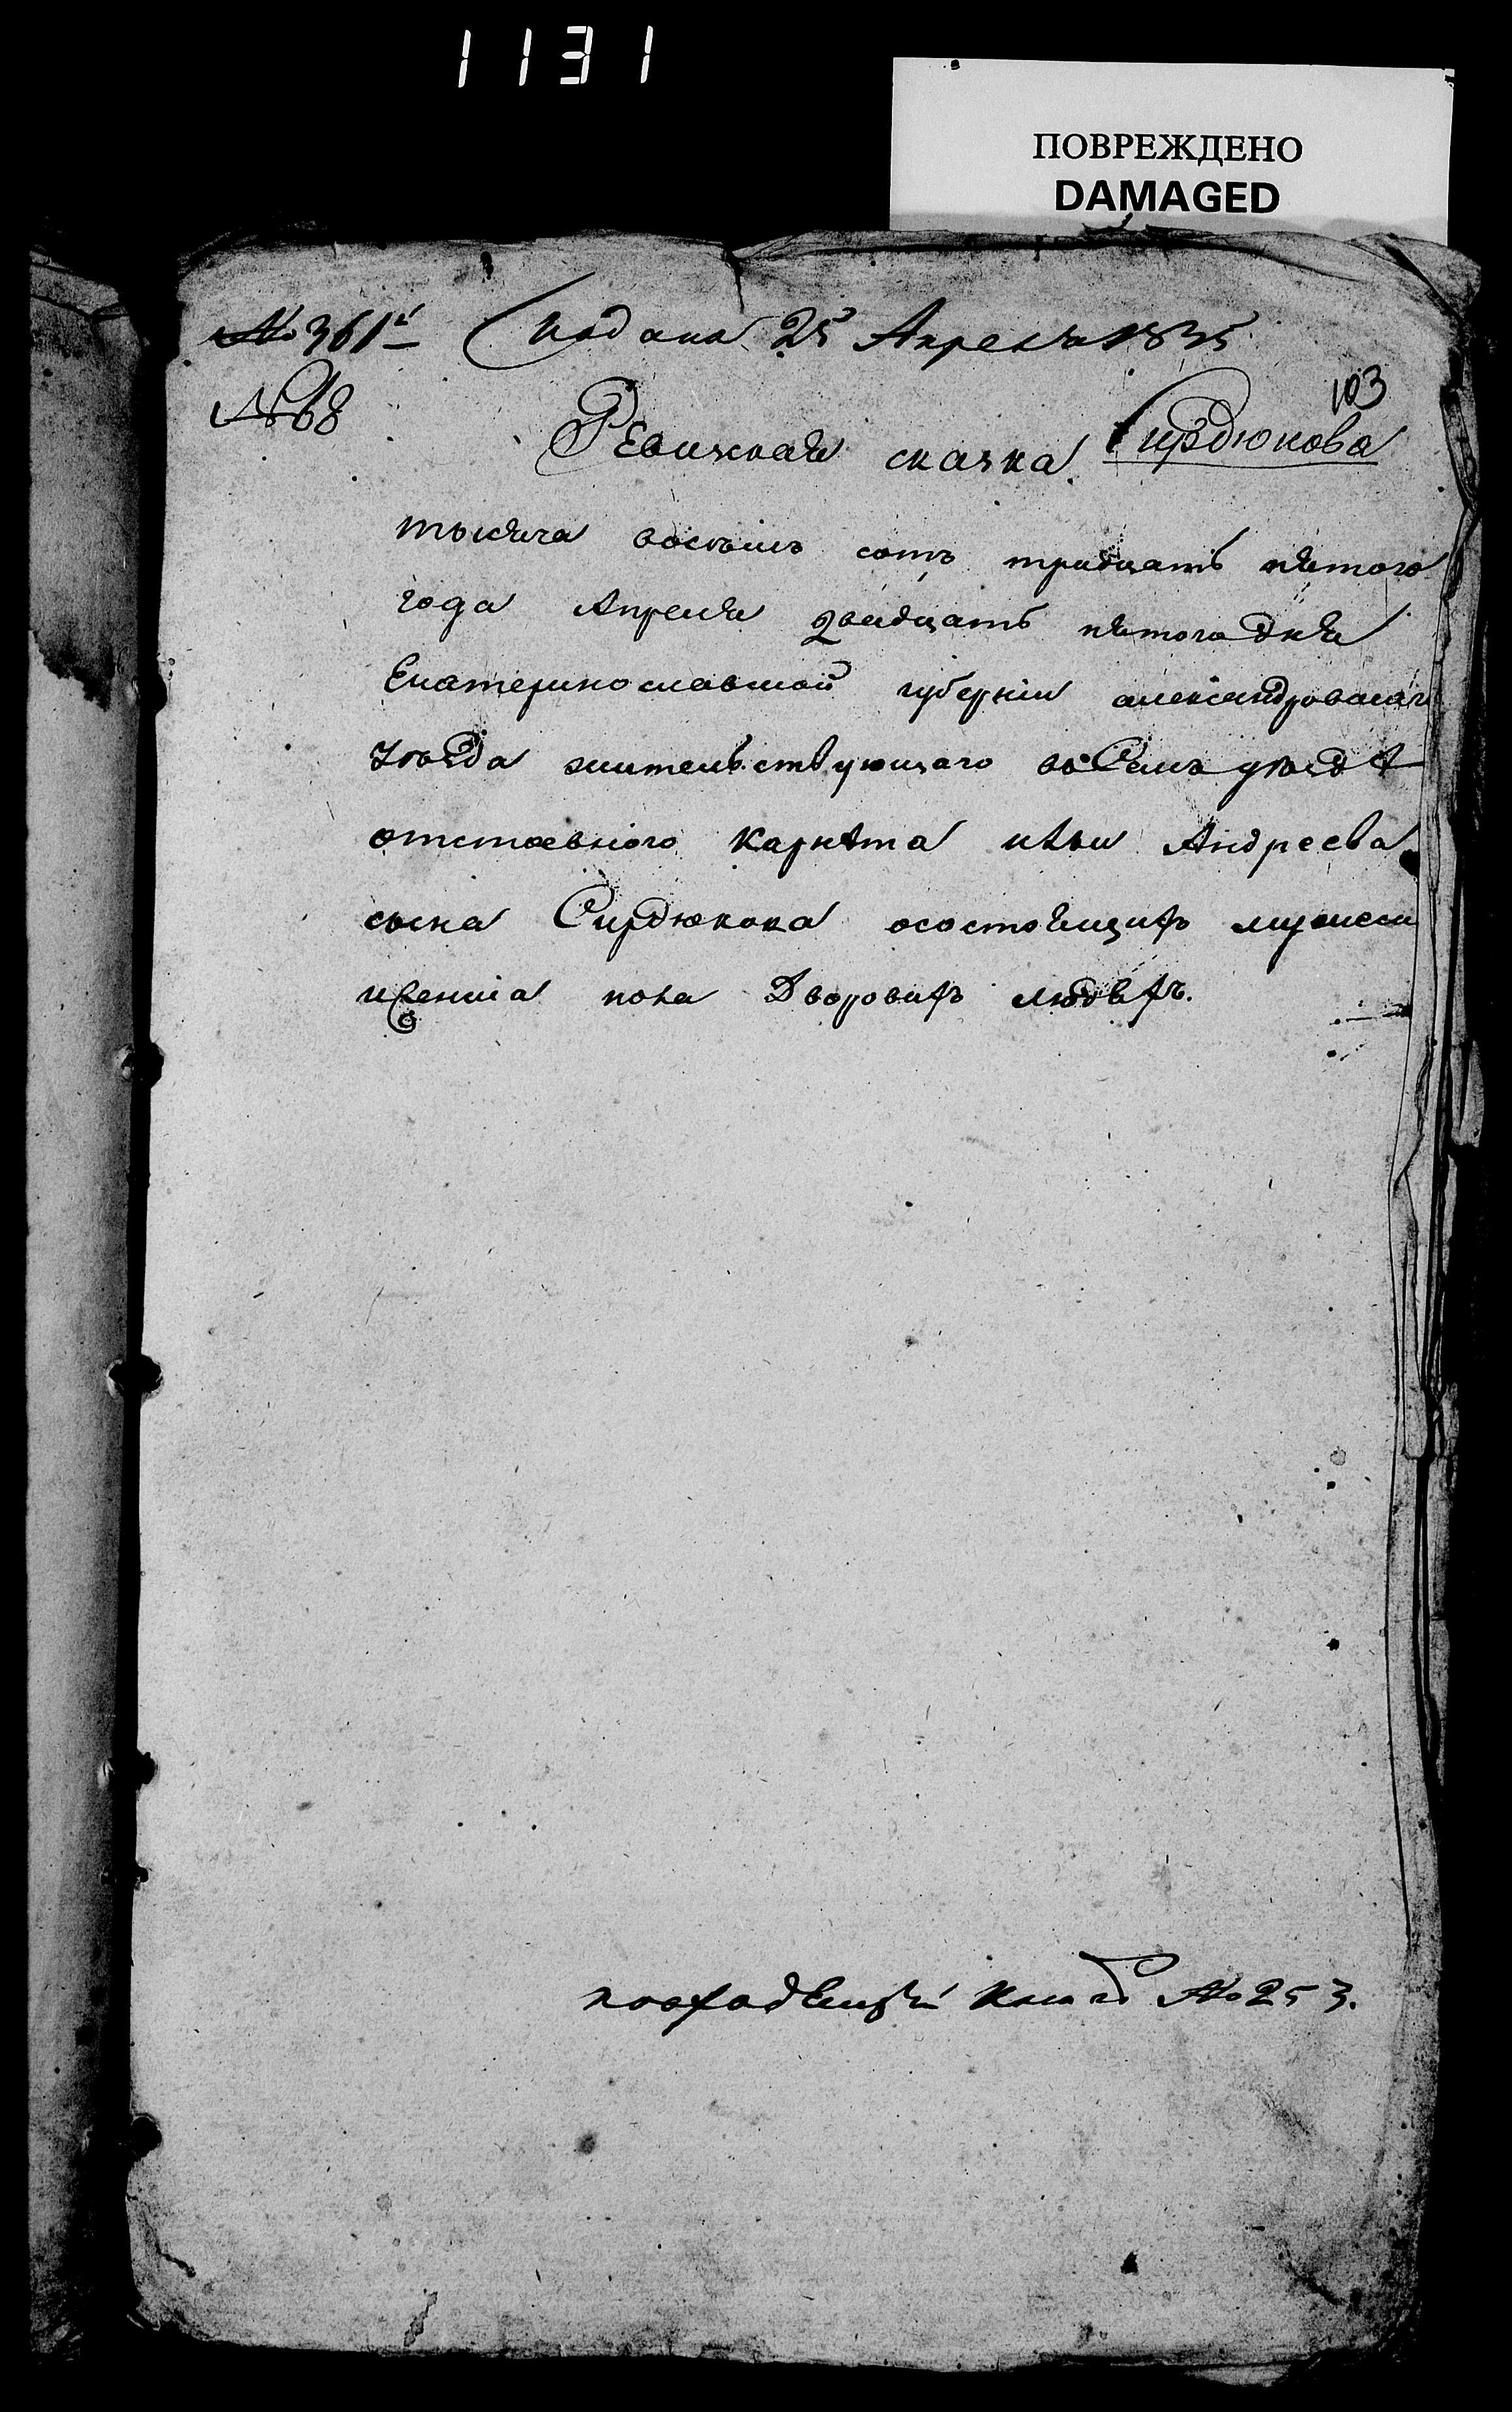 1131
ПОВРЕЖДЕНО
DAMAGED
№ 361й Подана 25 Апреля 1835
103
№ 68
Ревизская сказка Сирдюкова
тысяча восемь сотъ тридцать пятого
года Апреля двадцать пятого дня
Екатеринославской губерніи александровскаго
уѣзда жительствующаго въ Семъ уѣздѣ
отставного Карнѣта Андреева
сына Сирдюкова осостоящихъ мужеска
иженска пола Дворовихъ людѣхъ.
повходящей Книгѣ № 253.